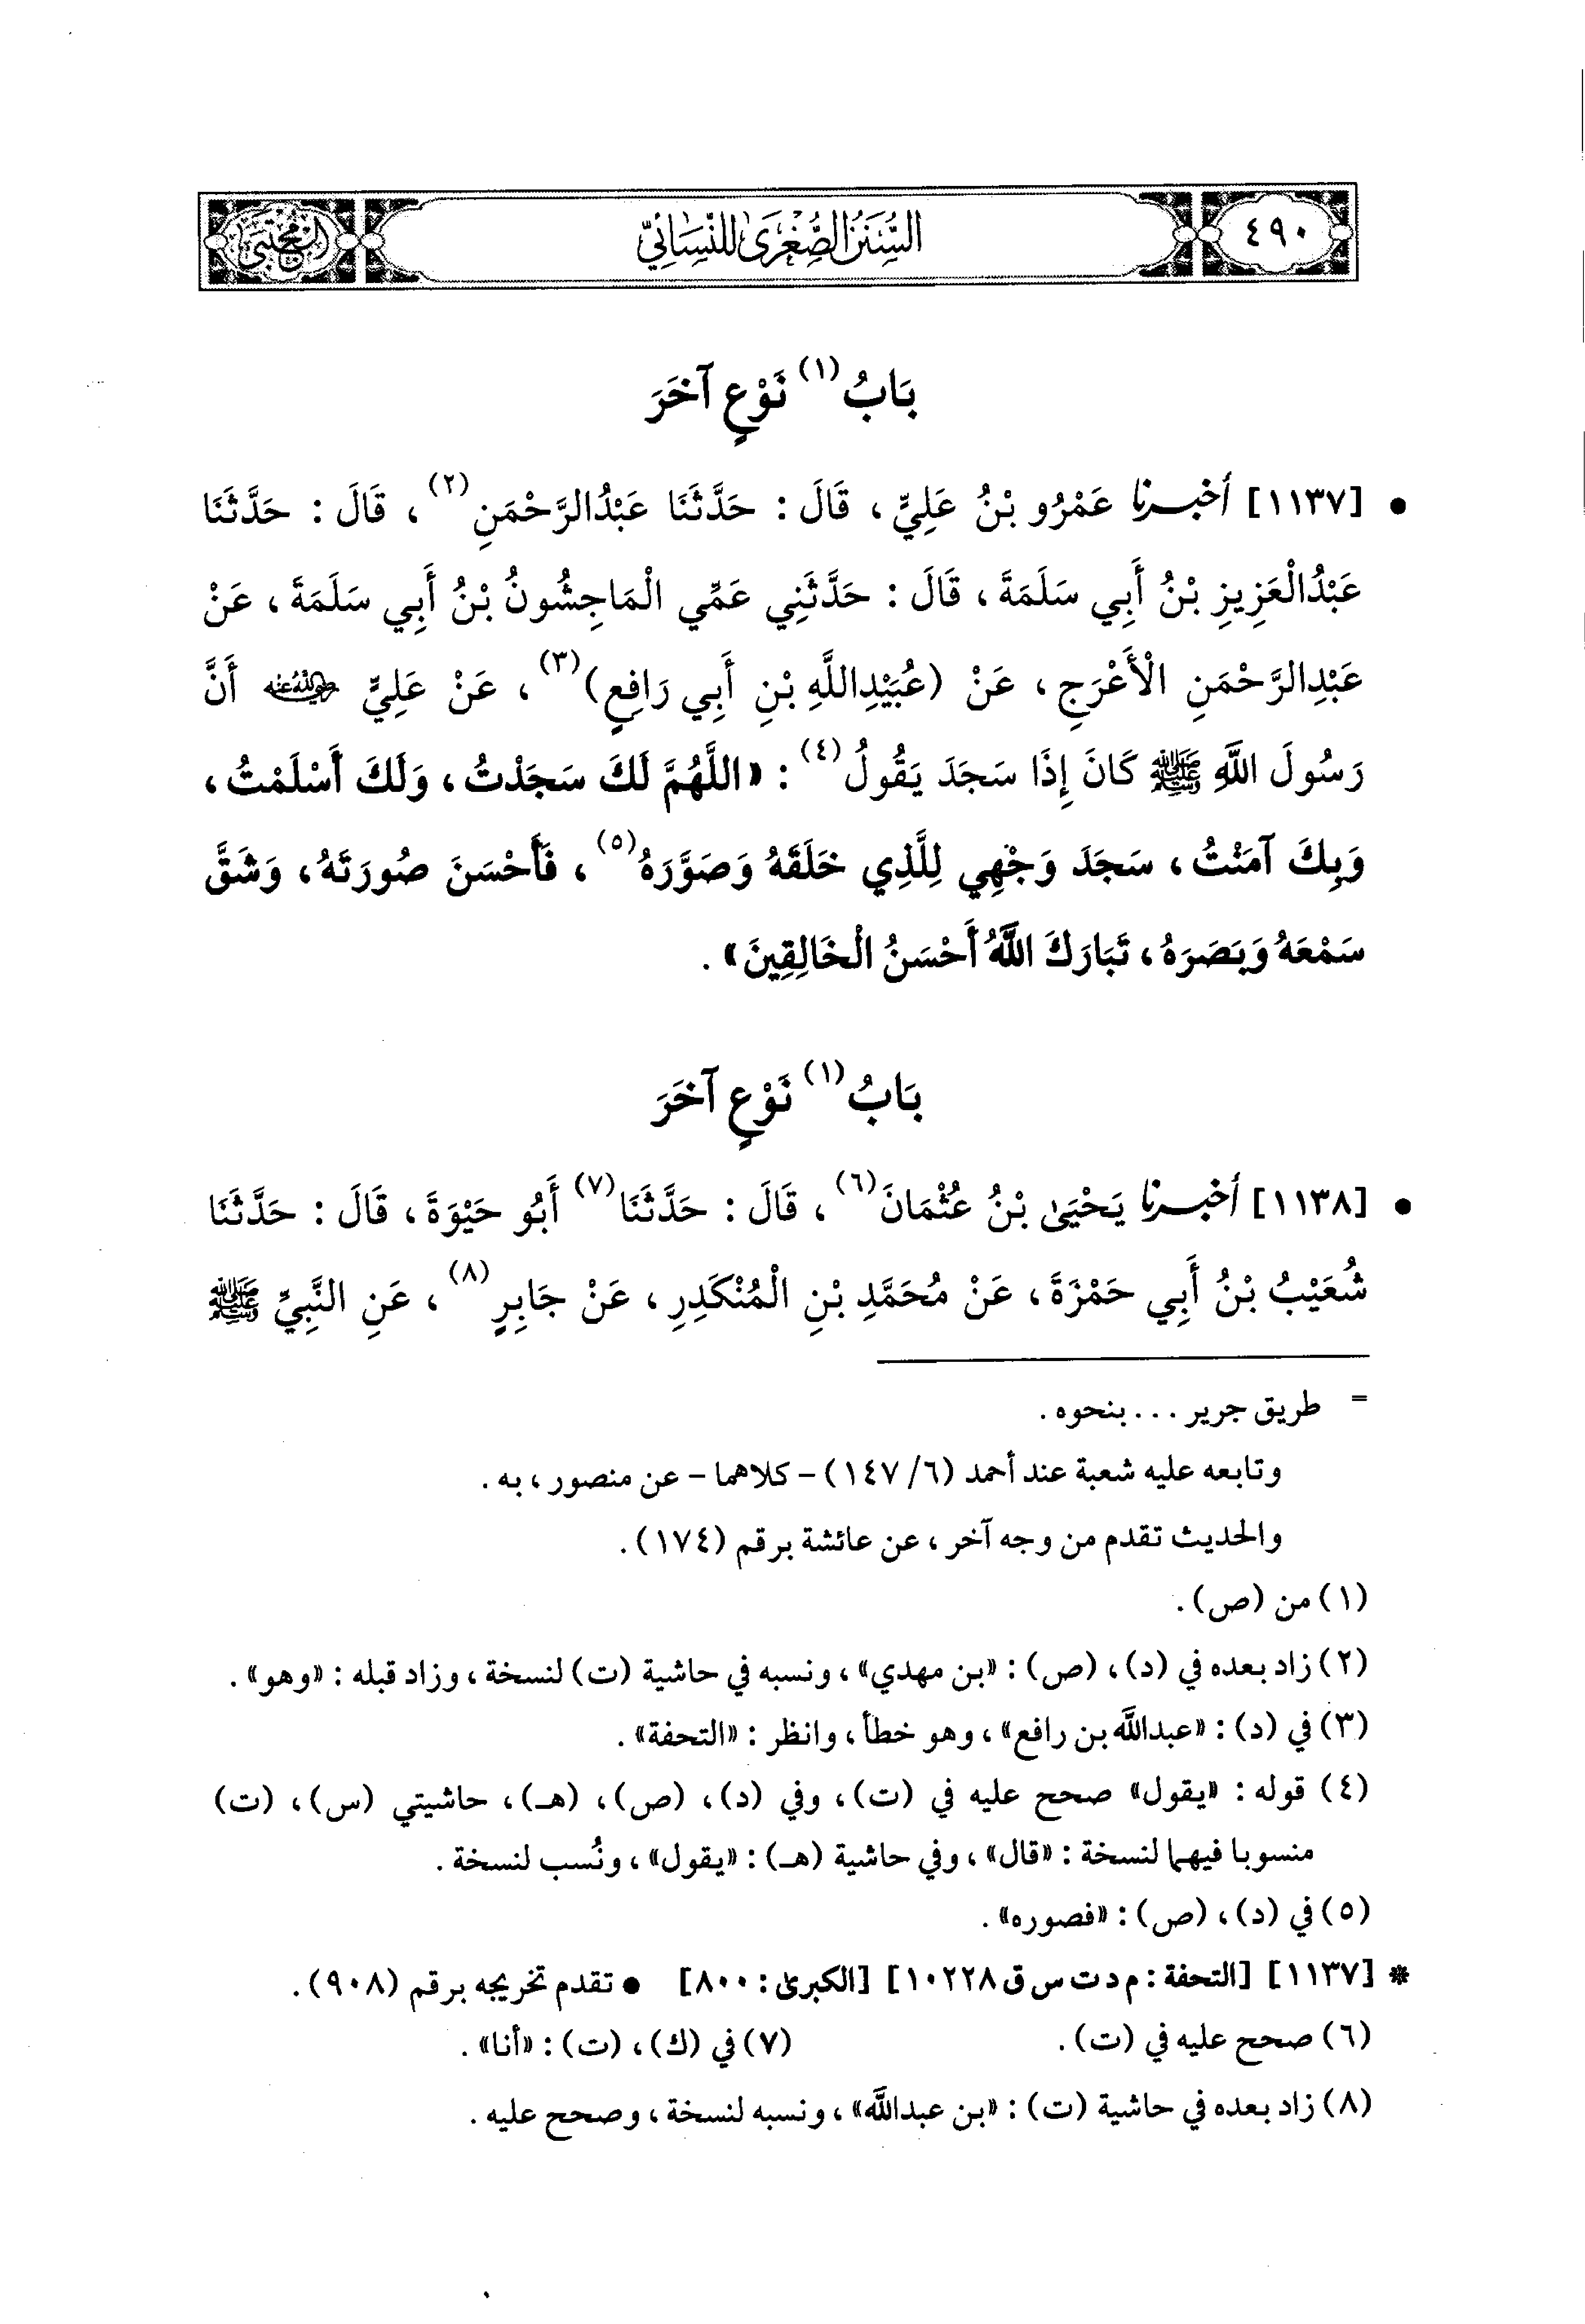 ٤٩٠
السُّنَنُ الصُّغْرَىٰ لِلنَّسَائِيِّ
المجتبى
بَابُ(١) نَوْعٍ آخَرَ
• [١١٣٧] أخبرنا عَمْرُو بْنُ عَلِيٍّ، قَالَ: حَدَّثَنَا عَبْدُالرَّحْمَنِ(٢)، قَالَ: حَدَّثَنَا
عَبْدُالْعَزِيزِ بْنُ أَبِي سَلَمَةَ، قَالَ: حَدَّثَنِي عَمِّي الْمَاجِشُونُ بْنُ أَبِي سَلَمَةَ، عَنْ
عَبْدِالرَّحْمَنِ الْأَعْرَجِ، عَنْ (عُبَيْدِاللَّهِ بْنِ أَبِي رَافِعٍ)(٣)، عَنْ عَلِيٍّ رضي الله عنه أَنَّ
رَسُولَ اللَّهِ ﷺ كَانَ إِذَا سَجَدَ يَقُولُ(٤): «اللَّهُمَّ لَكَ سَجَدْتُ، وَلَكَ أَسْلَمْتُ،
وَبِكَ آمَنْتُ، سَجَدَ وَجْهِي لِلَّذِي خَلَقَهُ وَصَوَّرَهُ(٥)، فَأَحْسَنَ صُورَتَهُ، وَشَقَّ
سَمْعَهُ وَبَصَرَهُ، تَبَارَكَ اللَّهُ أَحْسَنُ الْخَالِقِينَ».
بَابُ(١) نَوْعٍ آخَرَ
• [١١٣٨] أخبرنا يَحْيَىٰ بْنُ عُثْمَانَ(٦)، قَالَ: حَدَّثَنَا(٧) أَبُو حَيْوَةَ، قَالَ: حَدَّثَنَا
شُعَيْبُ بْنُ أَبِي حَمْزَةَ، عَنْ مُحَمَّدِ بْنِ الْمُنْكَدِرِ، عَنْ جَابِرٍ(٨)، عَنِ النَّبِيِّ ﷺ
= طريق جرير ... بنحوه.
وتابعه عليه شعبة عند أحمد (٦/ ١٤٧) - كلاهما - عن منصور، به.
والحديث تقدم من وجه آخر، عن عائشة برقم (١٧٤).
(١) من (ص).
(٢) زاد بعده في (د)، (ص): «بن مهدي»، ونسبه في حاشية (ت) لنسخة، وزاد قبله: «وهو».
(٣) في (د): «عبدالله بن رافع»، وهو خطأ، وانظر: «التحفة».
(٤) قوله: «يقول» صحح عليه في (ت)، وفي (د)، (ص)، (هـ)، حاشيتي (س)، (ت)
منسوبا فيهما لنسخة: «قال»، وفي حاشية (هـ): «يقول»، ونُسب لنسخة.
(٥) في (د)، (ص): «فصوره».
* [١١٣٧] [التحفة: م د ت س ق ١٠٢٢٨] [الكبرىٰ: ٨٠٠] • تقدم تخريجه برقم (٩٠٨).
(٦) صحح عليه في (ت). (٧) في (ك)، (ت): «أنا».
(٨) زاد بعده في حاشية (ت): «بن عبدالله»، ونسبه لنسخة، وصحح عليه.